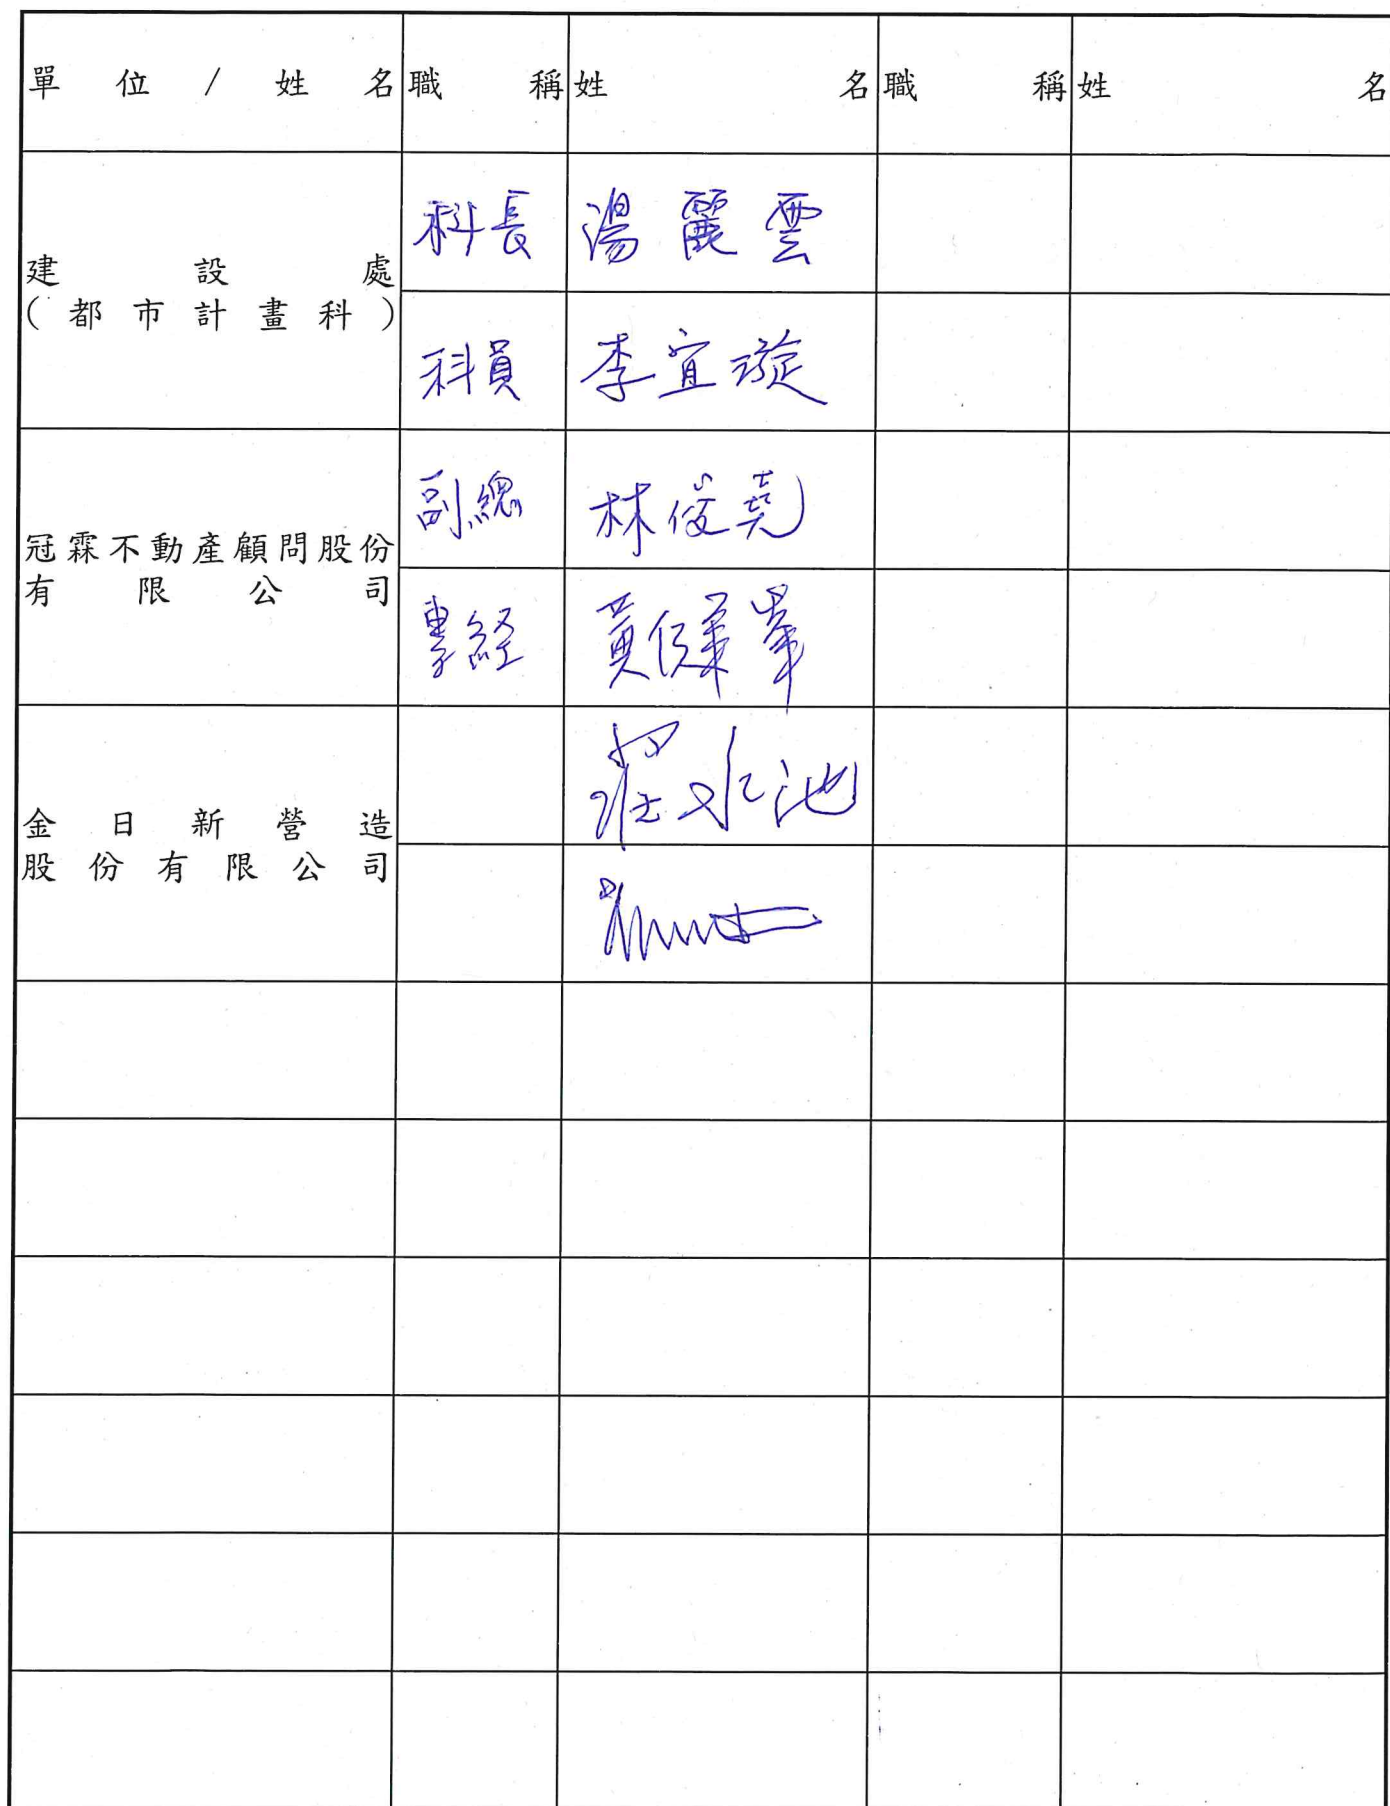 單位/姓名 職稱 姓名 職稱 姓名
建設處
(都市計畫科)
科長 湯麗雲
科員 李宜璇
冠霖不動產顧問股份
有限公司
副總 林俊堯
專經 黃
金日新營造
股份有限公司
莊水池